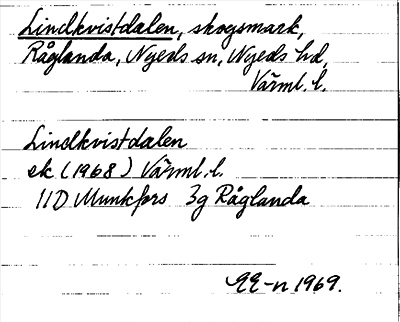 Lindkvistdalen, skogsmark,
Råglanda, Nyeds sn, Nyeds hd,
Värml. l.
Lindkvistdalen
ek (1968) Värml. l.
11D Munkfors 3g Råglanda
1969.